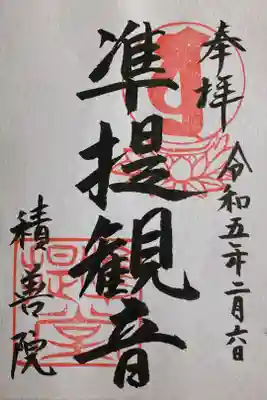 奉拝
令和五年二月六日
準提観音
積善院